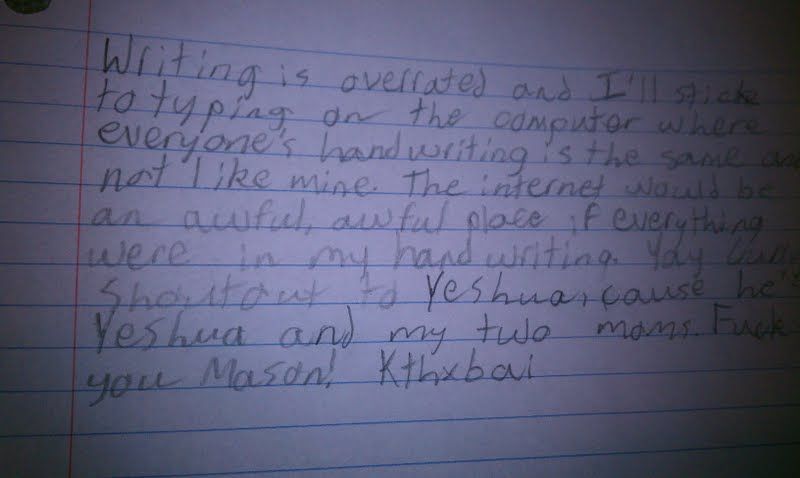 Writing is overrated and I'll stick
to typing on the computer where
everyone's handwriting is the same
not like mine. The internet would be
an awful, awful place if everything
were in my handwriting. Yay
Shoutout to Yeshua, cause he's
Yeshua and my two moms. Fuck
you Mason! Kthxbai